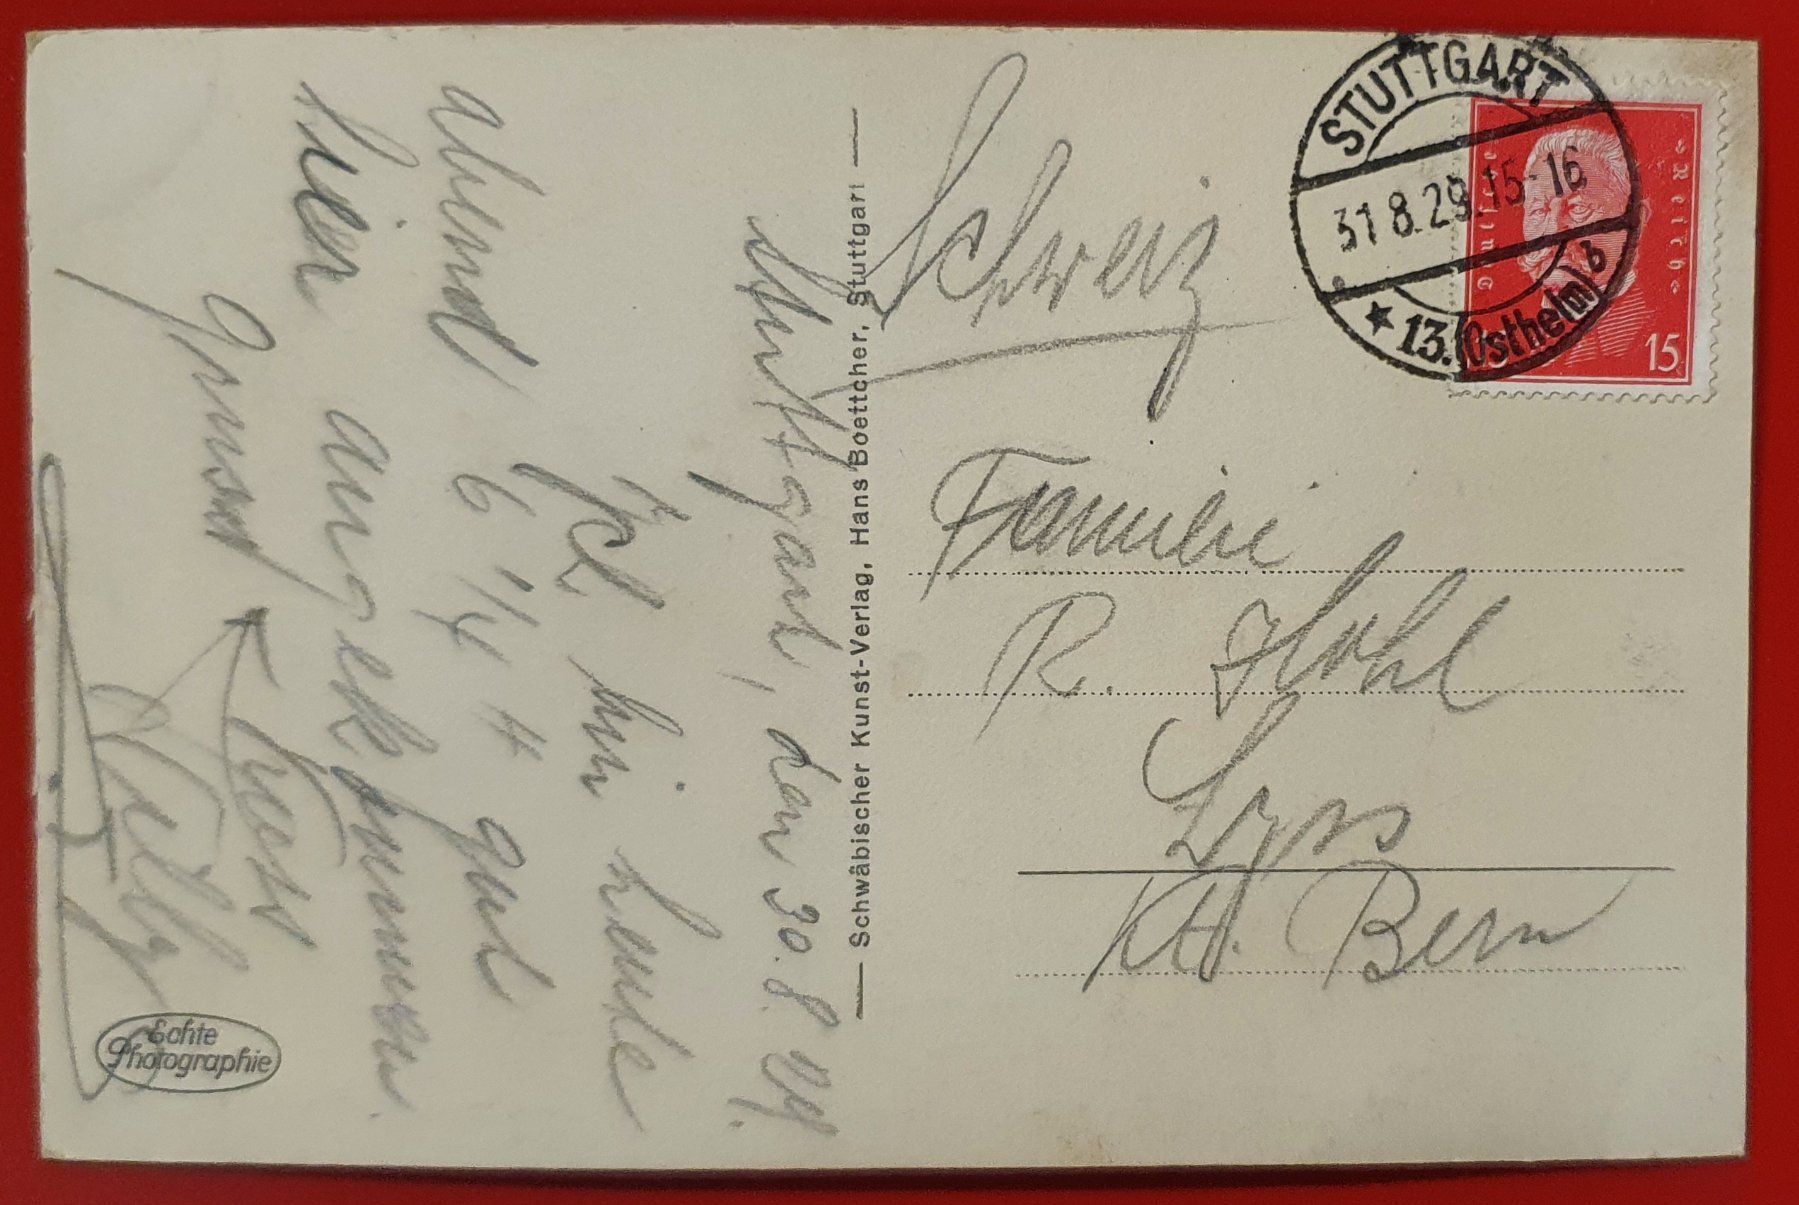 Stuttgart, den 30.8.29.
Ich bin heute
abend 6 1/4 4 gut
hier angekommen.
Gruss Kuss
Willy
Echte
Photographie
Schwäbischer Kunst-Verlag, Hans Boettcher, Stuttgart
Schweiz
Familie
R. Hohl
Lyss
Kt. Bern
STUTTGART
31.8.29.15-16
★ 13.(Ostheim) b
Deutsches Reich
15